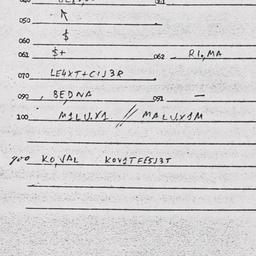 050 R
060 $
061 $+ 062 RI,MA
070 LE4XT+C1J3R
090 BEDNA 091 —
100 M1LU.Y1 // MALU.Y1M
900 KO,VAL KOV1TFE5J3T